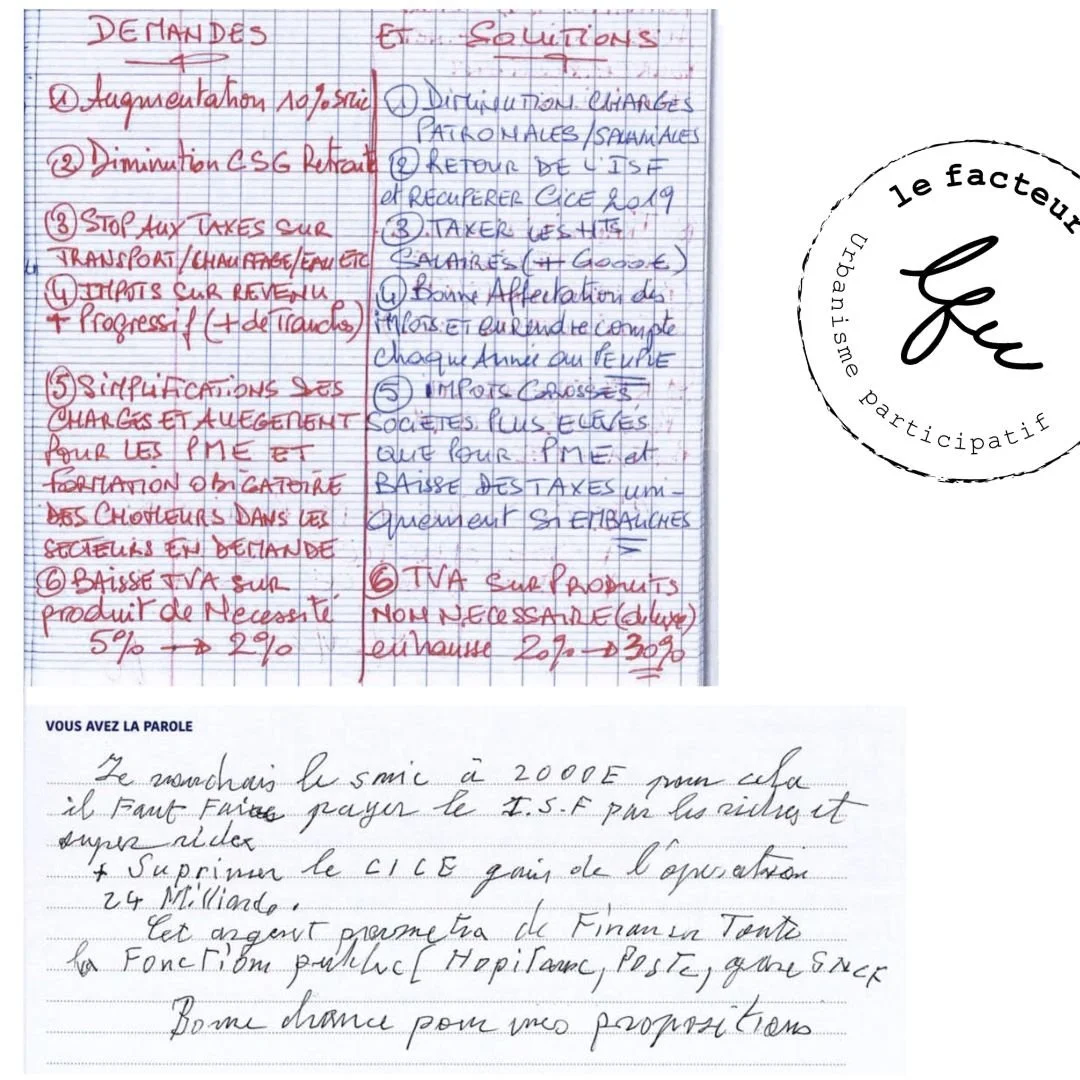 DEMANDES ET SOLUTIONS
① Augmentation 10% SMIC
② Diminution CSG Retraité
③ STOP AUX TAXES SUR
TRANSPORT/CHAUFFAGE/EAU ETC
④ IMPOTS SUR REVENU
+ Progressif (+ de Tranches)
⑤ SIMPLIFICATIONS DES
CHARGES ET ALLEGEMENT
POUR LES PME ET
FORMATION OBIGATOIRE
DES CHOMEURS DANS LES
SECTEURS EN DEMANDE
⑥ BAISSE TVA SUR
produit de Necessité
5% → 2%
① DIMINUTION CHARGES
PATRONALES/SALARIALES
② RETOUR DE L'ISF
et RECUPERER CICE 2019
③ TAXER LES HTS
SALAIRES (+ 6000€)
④ Bonne Affectation des
IMPOTS ET en Rendre compte
chaque Année au PEUPLE
⑤ IMPOTS GROSSES
SOCIETES PLUS ELEVES
QUE POUR PME et
BAISSE DES TAXES uni-
quement SI EMBAUCHES
⑥ TVA SUR PRODUITS
NON NECESSAIRE (de luxe)
en hausse 20% → 30%
le facteur
lfu
Urbanisme participatif
VOUS AVEZ LA PAROLE
Je voudrais le smic à 2000E pour cela
il Faut Faire payer le I.S.F par les riches et
super riches
+ Suprimer le CICE gain de l'operation
24 Milliards.
Cet argent permetra de Financer Toute
la Fonction public [ Hopitaux, Poste, gare SNCF
Bonne chance pour mes propositions